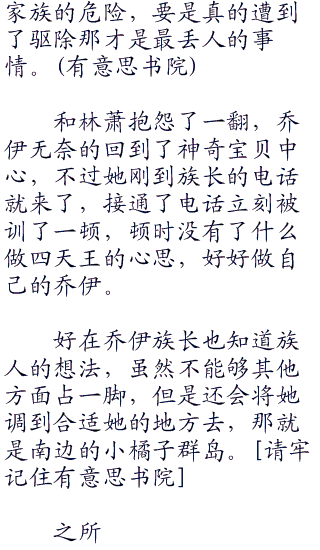 家族的危险，要是真的遭到
了驱除那才是最丢人的事
情。(有意思书院)
和林萧抱怨了一翻，乔
伊无奈的回到了神奇宝贝中
心，不过她刚到族长的电话
就来了，接通了电话立刻被
训了一顿，顿时没有了什么
做四天王的心思，好好做自
己的乔伊。
好在乔伊族长也知道族
人的想法，虽然不能够其他
方面占一脚，但是还会将她
调到合适她的地方去，那就
是南边的小橘子群岛。[请牢
记住有意思书院]
之所